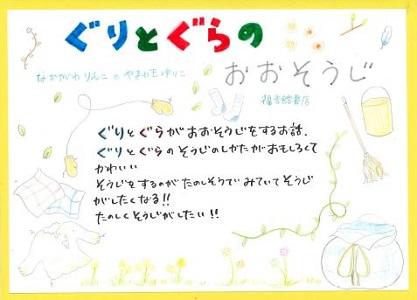 ぐりとぐらの
おおそうじ
なかがわ りえこ と やまわき ゆりこ
福音館書店
ぐりとぐらがおおそうじをするお話.
ぐりとぐらのそうじのしかたがおもしろくて
かわいい
そうじをするのがたのしそうでみていてそうじ
がしたくなる!!
たのしくそうじがしたい!!